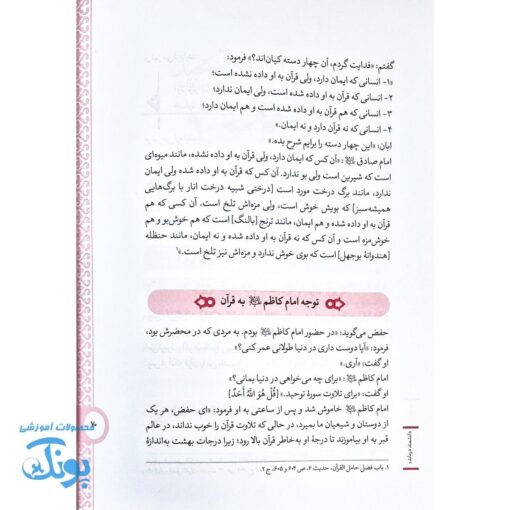 گفتم: «فدایت گردم، آن چهار دسته کیان‌اند؟» فرمود:
«۱- انسانی که ایمان دارد، ولی قرآن به او داده نشده است؛
۲- انسانی که قرآن به او داده شده است، ولی ایمان ندارد؛
۳- انسانی که هم قرآن به او داده شده است و هم ایمان دارد؛
۴- انسانی که نه قرآن دارد و نه ایمان.»
ابان: «این چهار دسته را برایم شرح بده.»
امام صادق ﷷ: «آن کس که ایمان دارد، ولی قرآن به او داده نشده، مانند میوه‌ای
است که شیرین است ولی بو ندارد. آن کس که قرآن به او داده شده ولی ایمان
ندارد، مانند برگ درخت مورد است [درختی شبیه درخت انار با برگ‌هایی
همیشه‌سبز] که بویش خوش است، ولی مزه‌اش تلخ است. آن کسی که هم
قرآن به او داده شده و هم ایمان، مانند ترنج [بالنگ] است که هم خوش‌بو و هم
خوش‌مزه است و آن کس که نه قرآن به او داده شده و نه ایمان، مانند حنظله
[هندوانهٔ بوجهل] است که بوی خوش ندارد و مزه‌اش نیز تلخ است.»۱
توجه امام کاظم به قرآن
حفص می‌گوید: «در حضور امام کاظم بودم. به مردی که در محضرش بود،
فرمود: «آیا دوست داری در دنیا طولانی عمر کنی؟»
او گفت: «آری.»
امام کاظم: «برای چه می‌خواهی در دنیا بمانی؟»
او گفت: «برای تلاوت سورهٔ توحید.» [قُلْ هُوَ اللَّهُ أَحَدٌ]
امام کاظم خاموش شد و پس از ساعتی به او فرمود: «ای حفص، هر یک
از دوستان و شیعیان ما بمیرد، در حالی که تلاوت قرآن را خوب نداند، در عالم
قبر به او بیاموزند تا درجهٔ او به‌خاطر قرآن بالا رود؛ زیرا درجات بهشت به‌اندازهٔ
۱. باب فضل حامل القرآن، حدیث ۶، ص ۶۰۴ و ۶۰۵، ج ۲.
محصولات آموزشی
پونک